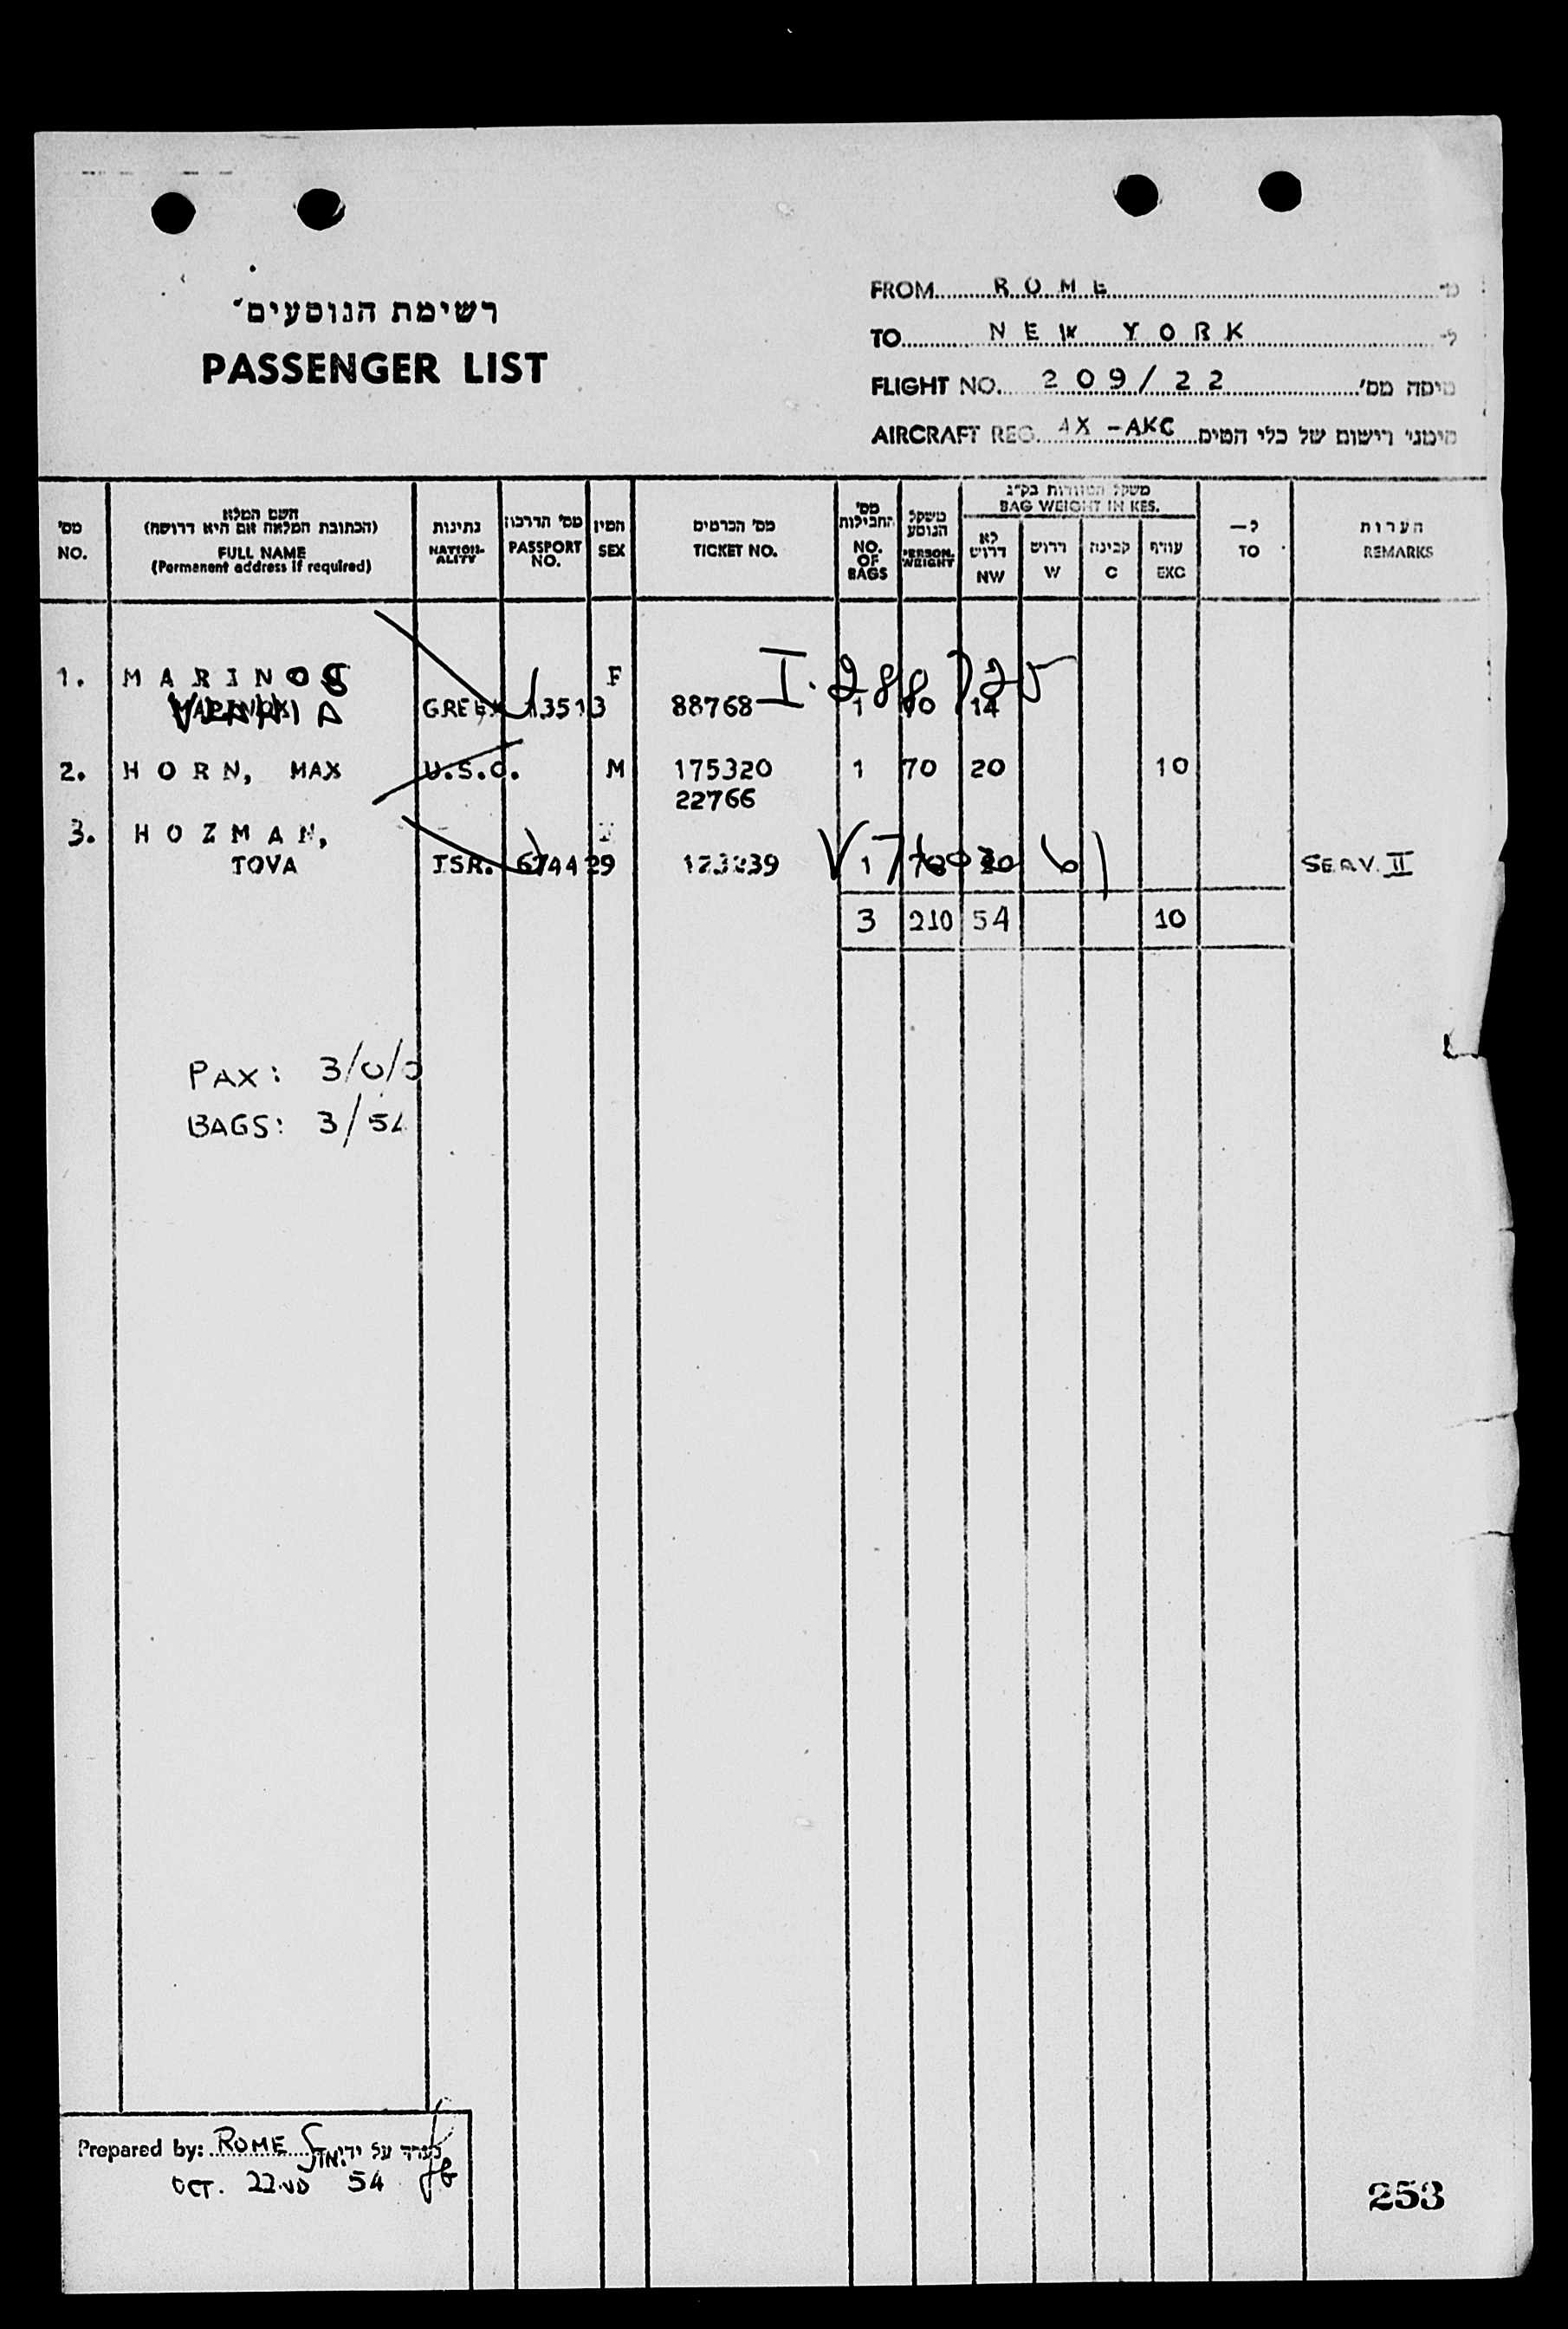 רשימת הנוסעים
PASSENGER LIST
FROM ROME מ-
TO NEW YORK ל-
FLIGHT NO. 209/22 טיסה מס'
AIRCRAFT REG. 4X-AKC סימני רישום של כלי הטיס
מס' NO.
השם המלא (הכתובת המלאה אם היא דרושה) FULL NAME (Permanent address if required)
נתינות NATION-ALITY
מס' הדרכון PASSPORT NO.
המין SEX
מס' הכרטיס TICKET NO.
מס' החבילות NO. OF BAGS
משקל הנוסע PERSON. WEIGHT
משקל המזוודות בק"ג BAG WEIGHT IN KES.
לא דרוש NW
דרוש W
קבינה C
עודף EXC
ל— TO
הערות REMARKS
1. MARINOS F
GREEK 13513 88768 1 70 14
I. 288725
2. HORN, MAX U.S.C. M 175320 1 70 20 10
22766
3. HOZMAN, F
TOVA ISR. 674429 123239 1 70 20 SERV. II
3 210 54 10
PAX: 3/0/0
BAGS: 3/54
Prepared by: ROME נערך על ידי
OCT. 22ND 54
253